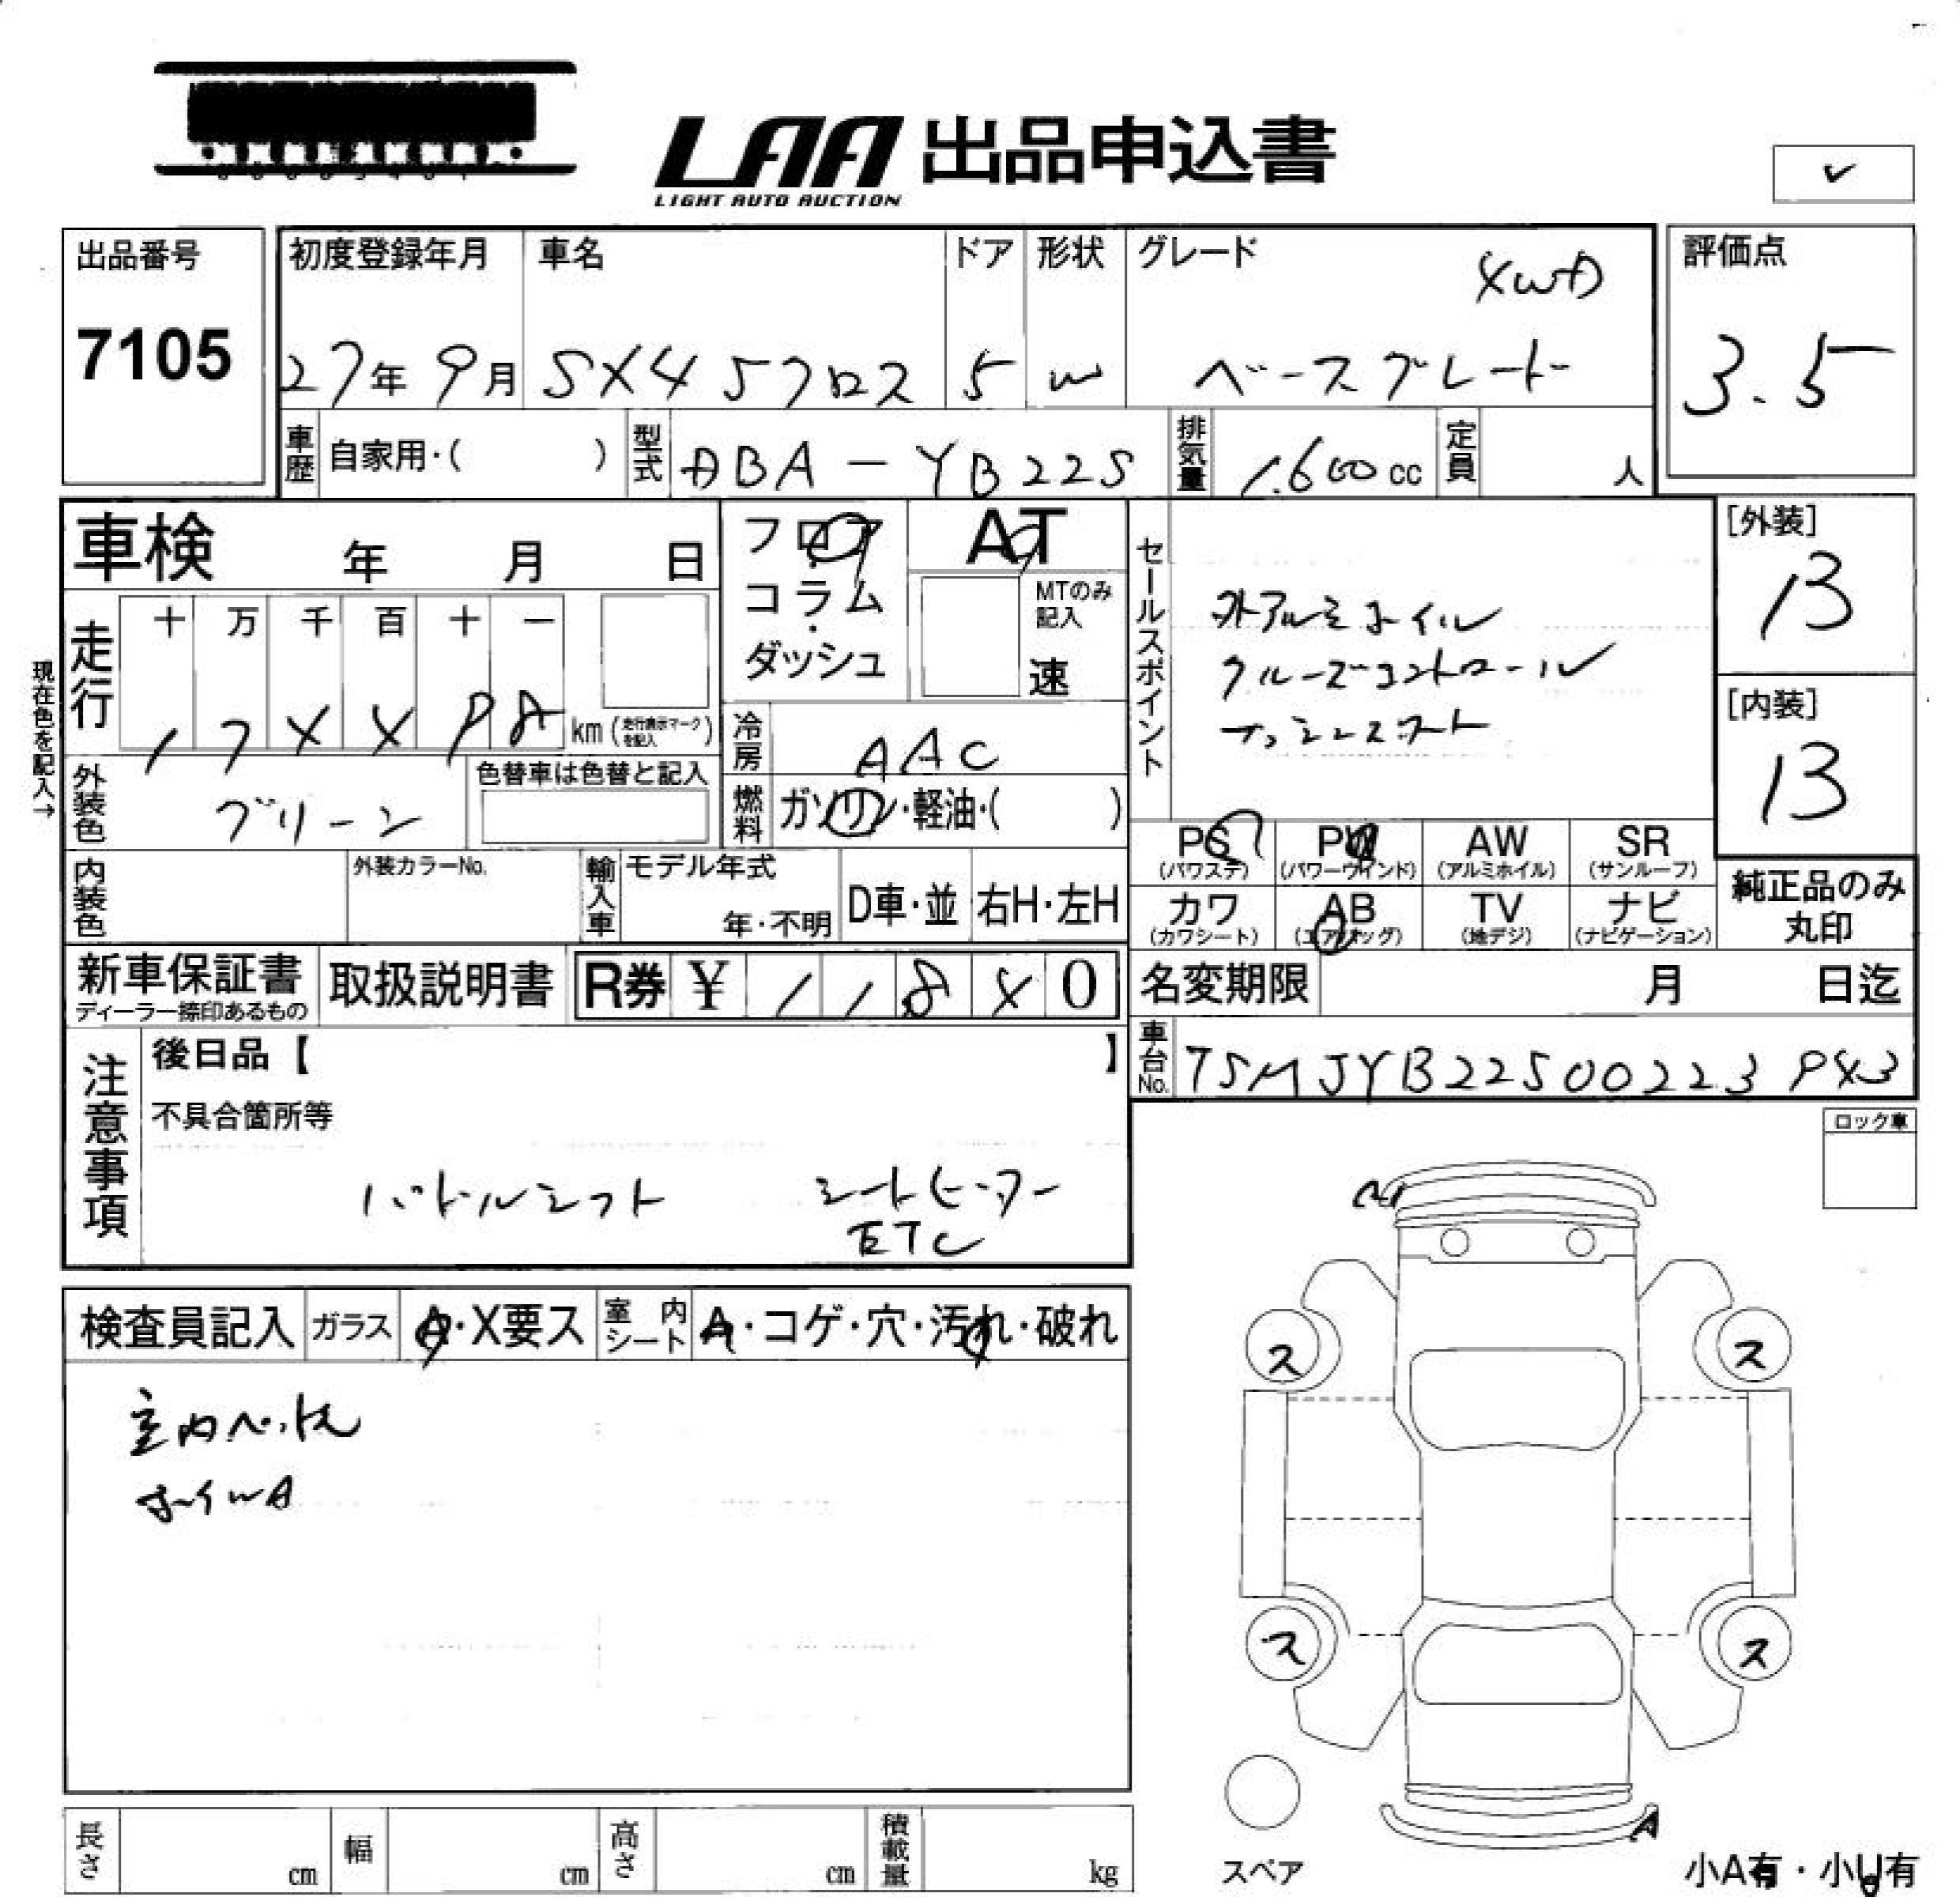 LAA 出品申込書
LIGHT AUTO AUCTION
出品番号
7105
初度登録年月
27年 9月
車名
SX4 Sクロス
ドア
5
形状
W
グレード
4WD
ベースグレード
評価点
3.5
車歴
自家用・( )
型式
DBA-YB22S
排気量
1.600 cc
定員
人
車検 年 月 日
フロア・コラム・ダッシュ
AT
MTのみ記入
速
セールスポイント
外アルミホイル
クルーズコントロール
プッシュスタート
[外装]
B
[内装]
B
現在色を記入→
走行
十 万 千 百 十 一
km (走行表示マークを記入)
冷房
AAC
外装色
グリーン
色替車は色替と記入
燃料
ガソリン・軽油・( )
PS
(パワステ)
PW
(パワーウインド)
AW
(アルミホイル)
SR
(サンルーフ)
カワ
(カワシート)
AB
(エアバッグ)
TV
(地デジ)
ナビ
(ナビゲーション)
純正品のみ
丸印
内装色
外装カラーNo.
輸入車
モデル年式
年・不明
D車・並
右H・左H
新車保証書
ディーラー捺印あるもの
取扱説明書
R券 ¥ 11840
名変期限 月 日迄
車台No.
TSMJYB22S00223943
注意事項
後日品【 】
不具合箇所等
パドルシフト シートヒーター
ETC
ロック車
検査員記入
ガラス
A・X要ス
室内シート
A・コゲ・穴・汚れ・破れ
ホイルA
ス
ス
ス
ス
A
スペア
長さ cm
幅 cm
高さ cm
積載量 kg
小A有・小U有